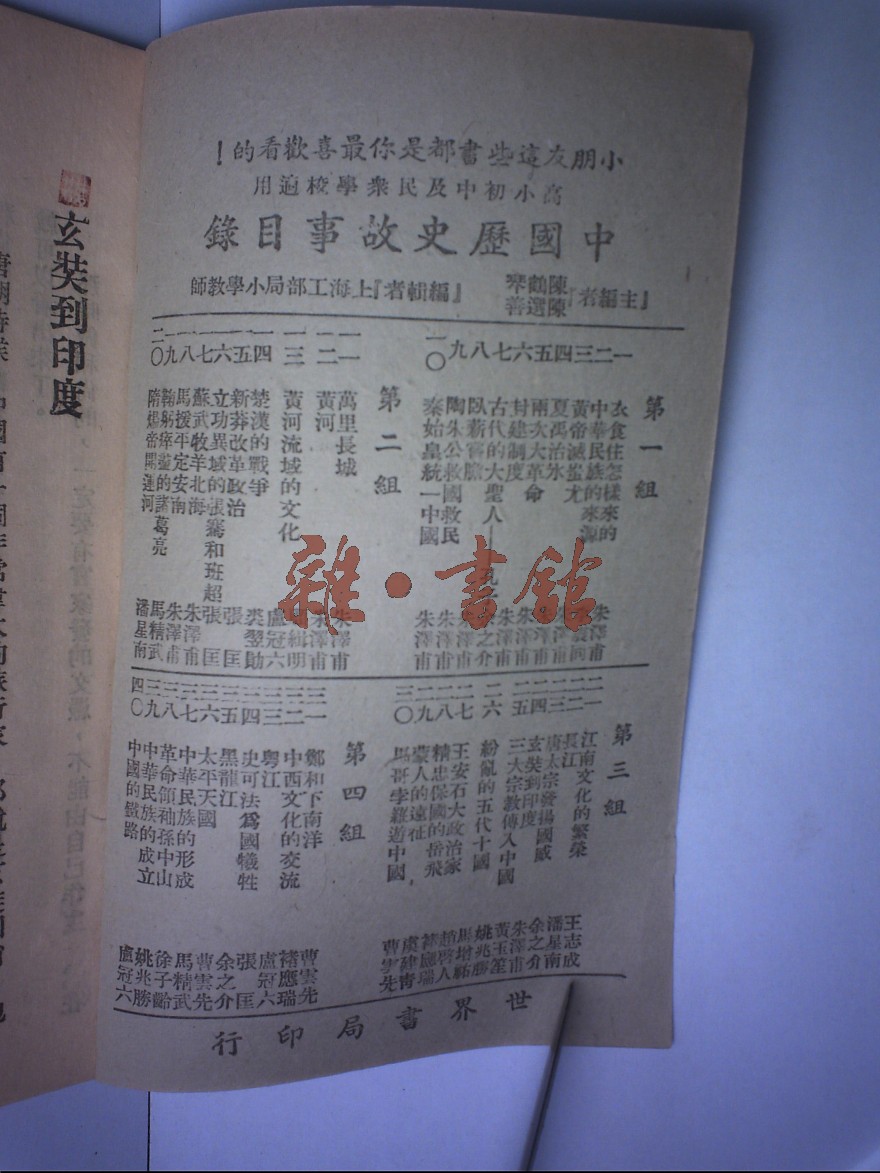 小朋友這些書都是你最喜歡看的！
高小初中及民衆學校適用
中國歷史故事目錄
『主編者』陳鶴琴 陳選善 『編輯者』上海工部局小學教師
第一組
一 衣食住怎樣來的 朱澤甫
二 中華民族的來源
三 黃帝滅蚩尤
四 夏禹治水 朱澤甫
五 兩次大革命 朱澤甫
六 封建制度 朱澤甫
七 古代的大聖人——孔子 余之介
八 臥薪嘗膽 朱澤甫
九 陶朱公救國救民 朱澤甫
一〇 秦始皇統一中國 朱澤甫
第二組
一一 萬里長城 朱澤甫
一二 黃河 朱澤甫
一三 黃河流域的文化 緝明
一四 楚漢的戰爭 盧冠六
一五 新莽改革政治 裘翌勛
一六 立功異域的張騫和班超 張匡
一七 蘇武牧羊北海 張匡
一八 馬援平定安南 朱澤甫
一九 鞠躬瘁盡的諸葛亮 馬精武
二〇 隋煬帝開運河 潘星南
第三組
二一 江南文化的繁榮 王志成
二二 長江 潘星南
二三 唐太宗發揚國威 余之介
二四 玄奘到印度 朱澤甫
二五 三大宗教傳入中國 黃玉笙
二六 紛亂的五代十國 姚兆勝
二七 王安石大政治家 馬增
二八 精忠保國的岳飛 趙啓人
二九 蒙人的遠征 褚應瑞
三〇 馬哥孛羅遊中國 虞建靑 曹雲先
第四組
三一 鄭和下南洋 曹雲先
三二 中西文化的交流 褚應瑞
三三 粵江 盧冠六
三四 史可法爲國犧牲 張匡
三五 黑龍江 余之介
三六 太平天國 曹雲先
三七 中華民族的形成 馬精武
三八 革命領袖孫中山 徐子齡
三九 中華民族的成立 姚兆勝
四〇 中國的鐵路 盧冠六
世界書局印行
雜·書館
玄奘到印度